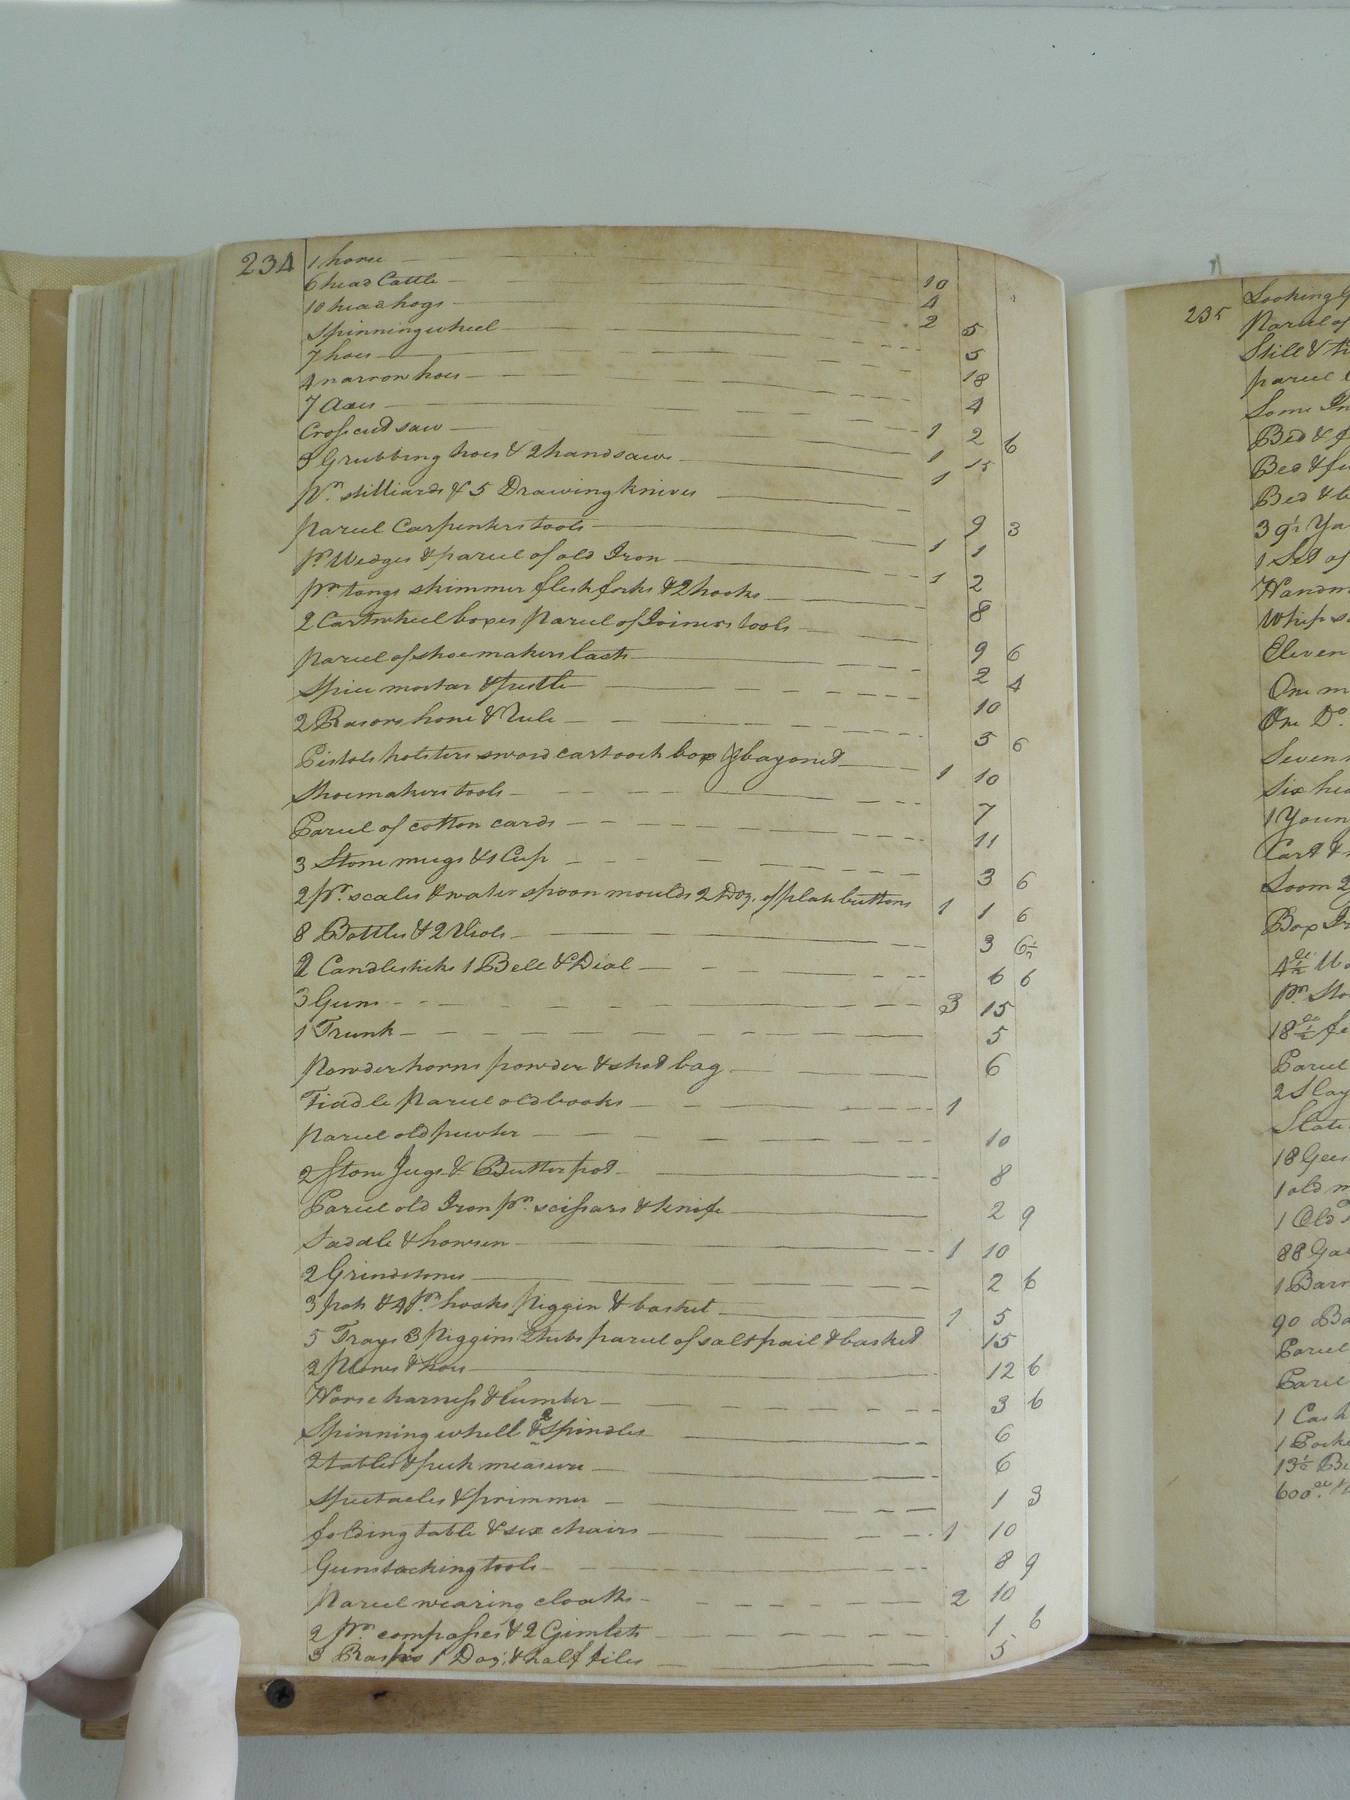 234
1 horse 10
6 head Cattle 4
10 head hogs 2 5
Spinning wheel 5
7 hoes 18
4 narrow hoes 4
7 Axes 1 2 6
Crosscut saw 1 15
3 Grubbing hoes & 2 handsaws 1
Pr. stilliards & 5 Drawing knives 9 3
Parcel Carpenters tools 1 1
Pr Wedges & parcel of old Iron 1 2
Pr tongs skimmer flesh forks & 2 hooks 8
2 Cartwheel boxes Parcel of Joiners tools 9 6
Parcel of shoemakers lasts 2 4
Spice mortar & pestle 10
2 Rasors hone & Rule 5 6
Pistols holsters sword cartooch box & bayonet 1 10
Shoemakers tools 7
Parcel of cotton cards 11
3 Stone mugs & 1 Cup 3 6
2 pr. scales & water spoon moulds 2 Doz. of plate buttons 1 1 6
8 Bottles & 2 Viols 3 6½
2 Candlesticks 1 Bell & Dial 6 6
3 Guns 3 15
1 Trunk 5
Powder horns powder & shot bag 6
Fiddle Parcel old books 1
Parcel old pewter 10
2 Stone Jugs & Butter pot 8
Parcel old Iron pr. scissars & knife 2 9
Saddle & howsen 1 10
2 Grindstones 2 6
3 pots & 4 pr hooks Piggin & basket 1 5
5 Trays 3 Piggins 2 tubs parcel of salt pail & basket 15
2 Plows & hoes 12 6
Horse harness & lumber 3 6
Spinning wheel & 2 spindles 6
2 tables & peck measure 6
Spectacles & primmer 1 3
folding table & six chairs 1 10
Gunstocking tools 8 9
Parcel wearing cloaths 2 10
2 pr. compasses & 2 Gimlets 1 6
3 Rasps 1 Doz. & half files 5
235
Looking
Parcel of
Still &
parcel
Some
Bed &
Bed & fu
Bed &
1 Set of
Whip
Eleven
One
One Do.
Seven
Six hea
1 Youn
Cart &
Loom
Box
Parcel
2 Slay
18 Gees
1 old
1 Old
88 Gal
1 Barr
90
Parcel
Parcel
1 Cask
1
13½
600